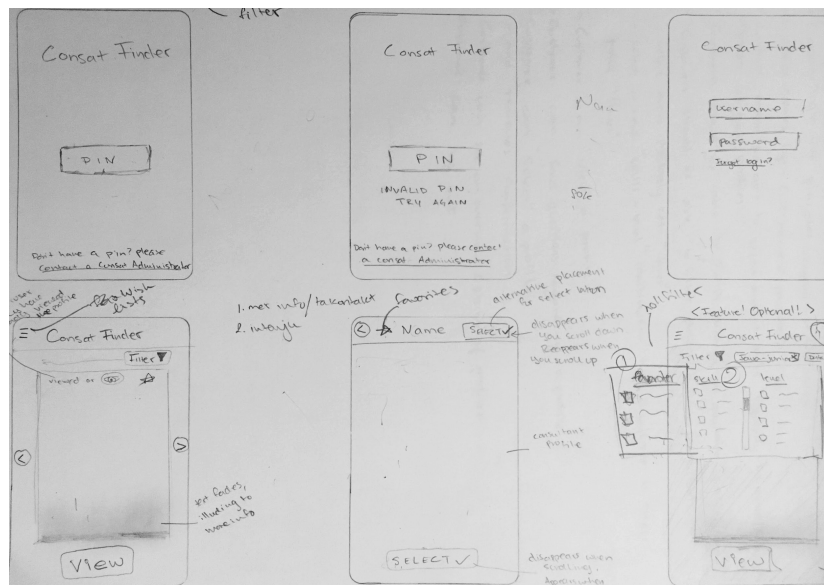 filter
Consat Finder
PIN
Don't have a pin? please
contact a Consat Administrator
Consat Finder
PIN
INVALID PIN
TRY AGAIN
Dont have a pin? please contact
a consat Administrator
Consat Finder
username
password
Forgot log in?
lists
Consat Finder
Filter
viewed
text fades,
alluding to
more info
VIEW
1. mer info/ta kontakt
2. intervju
favorites
Name
SELECT ✓
alternative placement
for select button
disappears when
you scroll down
Reappears when
you scroll up
consultant
profile
SELECT ✓
disappears when
scrolling.
<Feature! Optional!>
Consat Finder
Filter
Java-junior
1
favoriter
skill
2
level
View